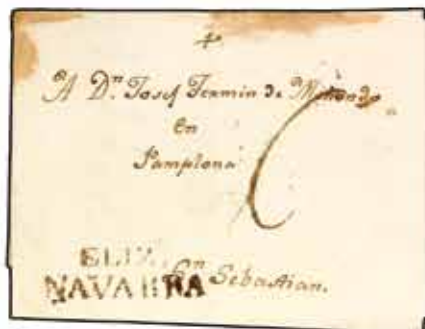 A Dn. Josef Fermin de
en
Pamplona
ELIZ.
NAVARRA
Sn Sebastian.